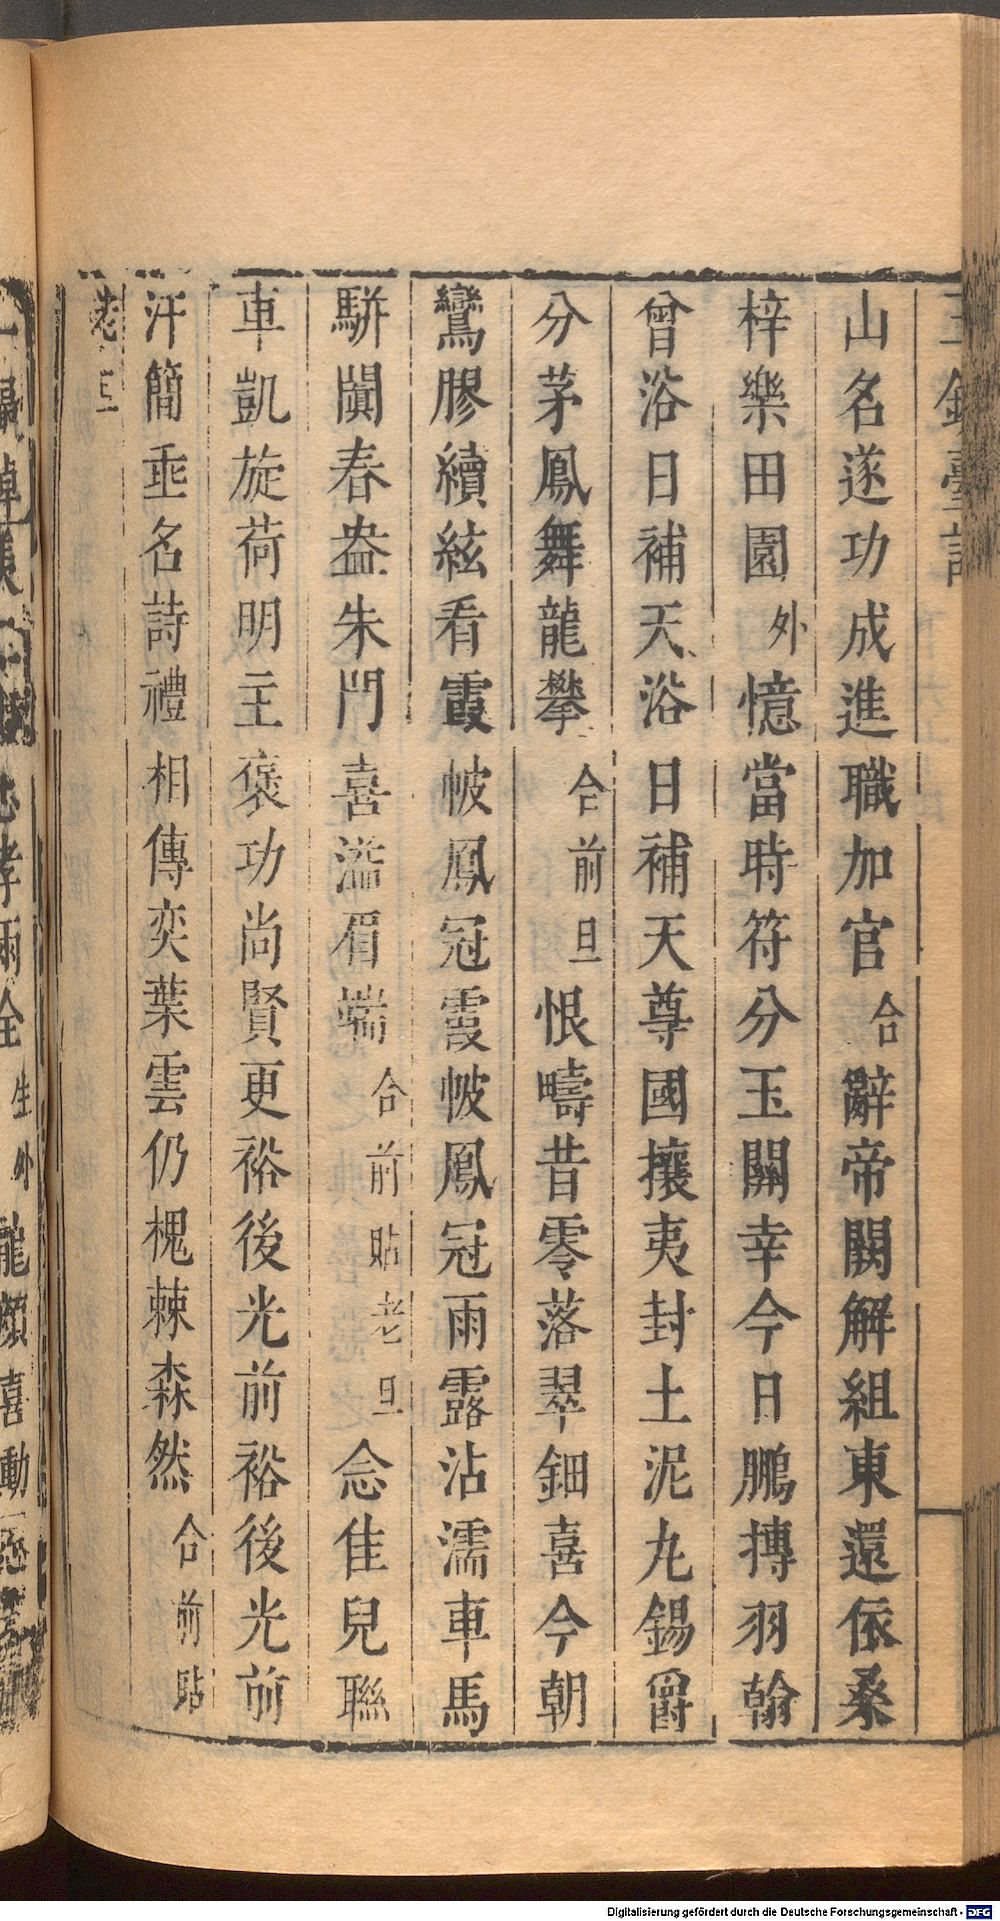 山名遂功成進職加官合辭帝闕解組東還依桑
梓樂田園外憶當時符分玉關幸今日鵬摶羽翰
曾浴日補天浴日補天尊國攘夷封土泥九錫爵
分茅鳳舞龍攀合前旦恨疇昔零落翠鈿喜今朝
鸞膠續絃看霞帔鳳冠霞帔鳳冠雨露沾濡車馬
駢闐春盎朱門喜溢眉端合前貼老旦念佳兒聯
車凱旋荷明主褒功尚賢更裕後光前裕後光前
汗簡垂名詩禮相傳奕葉雲仍槐棘森然合前貼
Digitalisierung gefördert durch die Deutsche Forschungsgemeinschaft - DFG